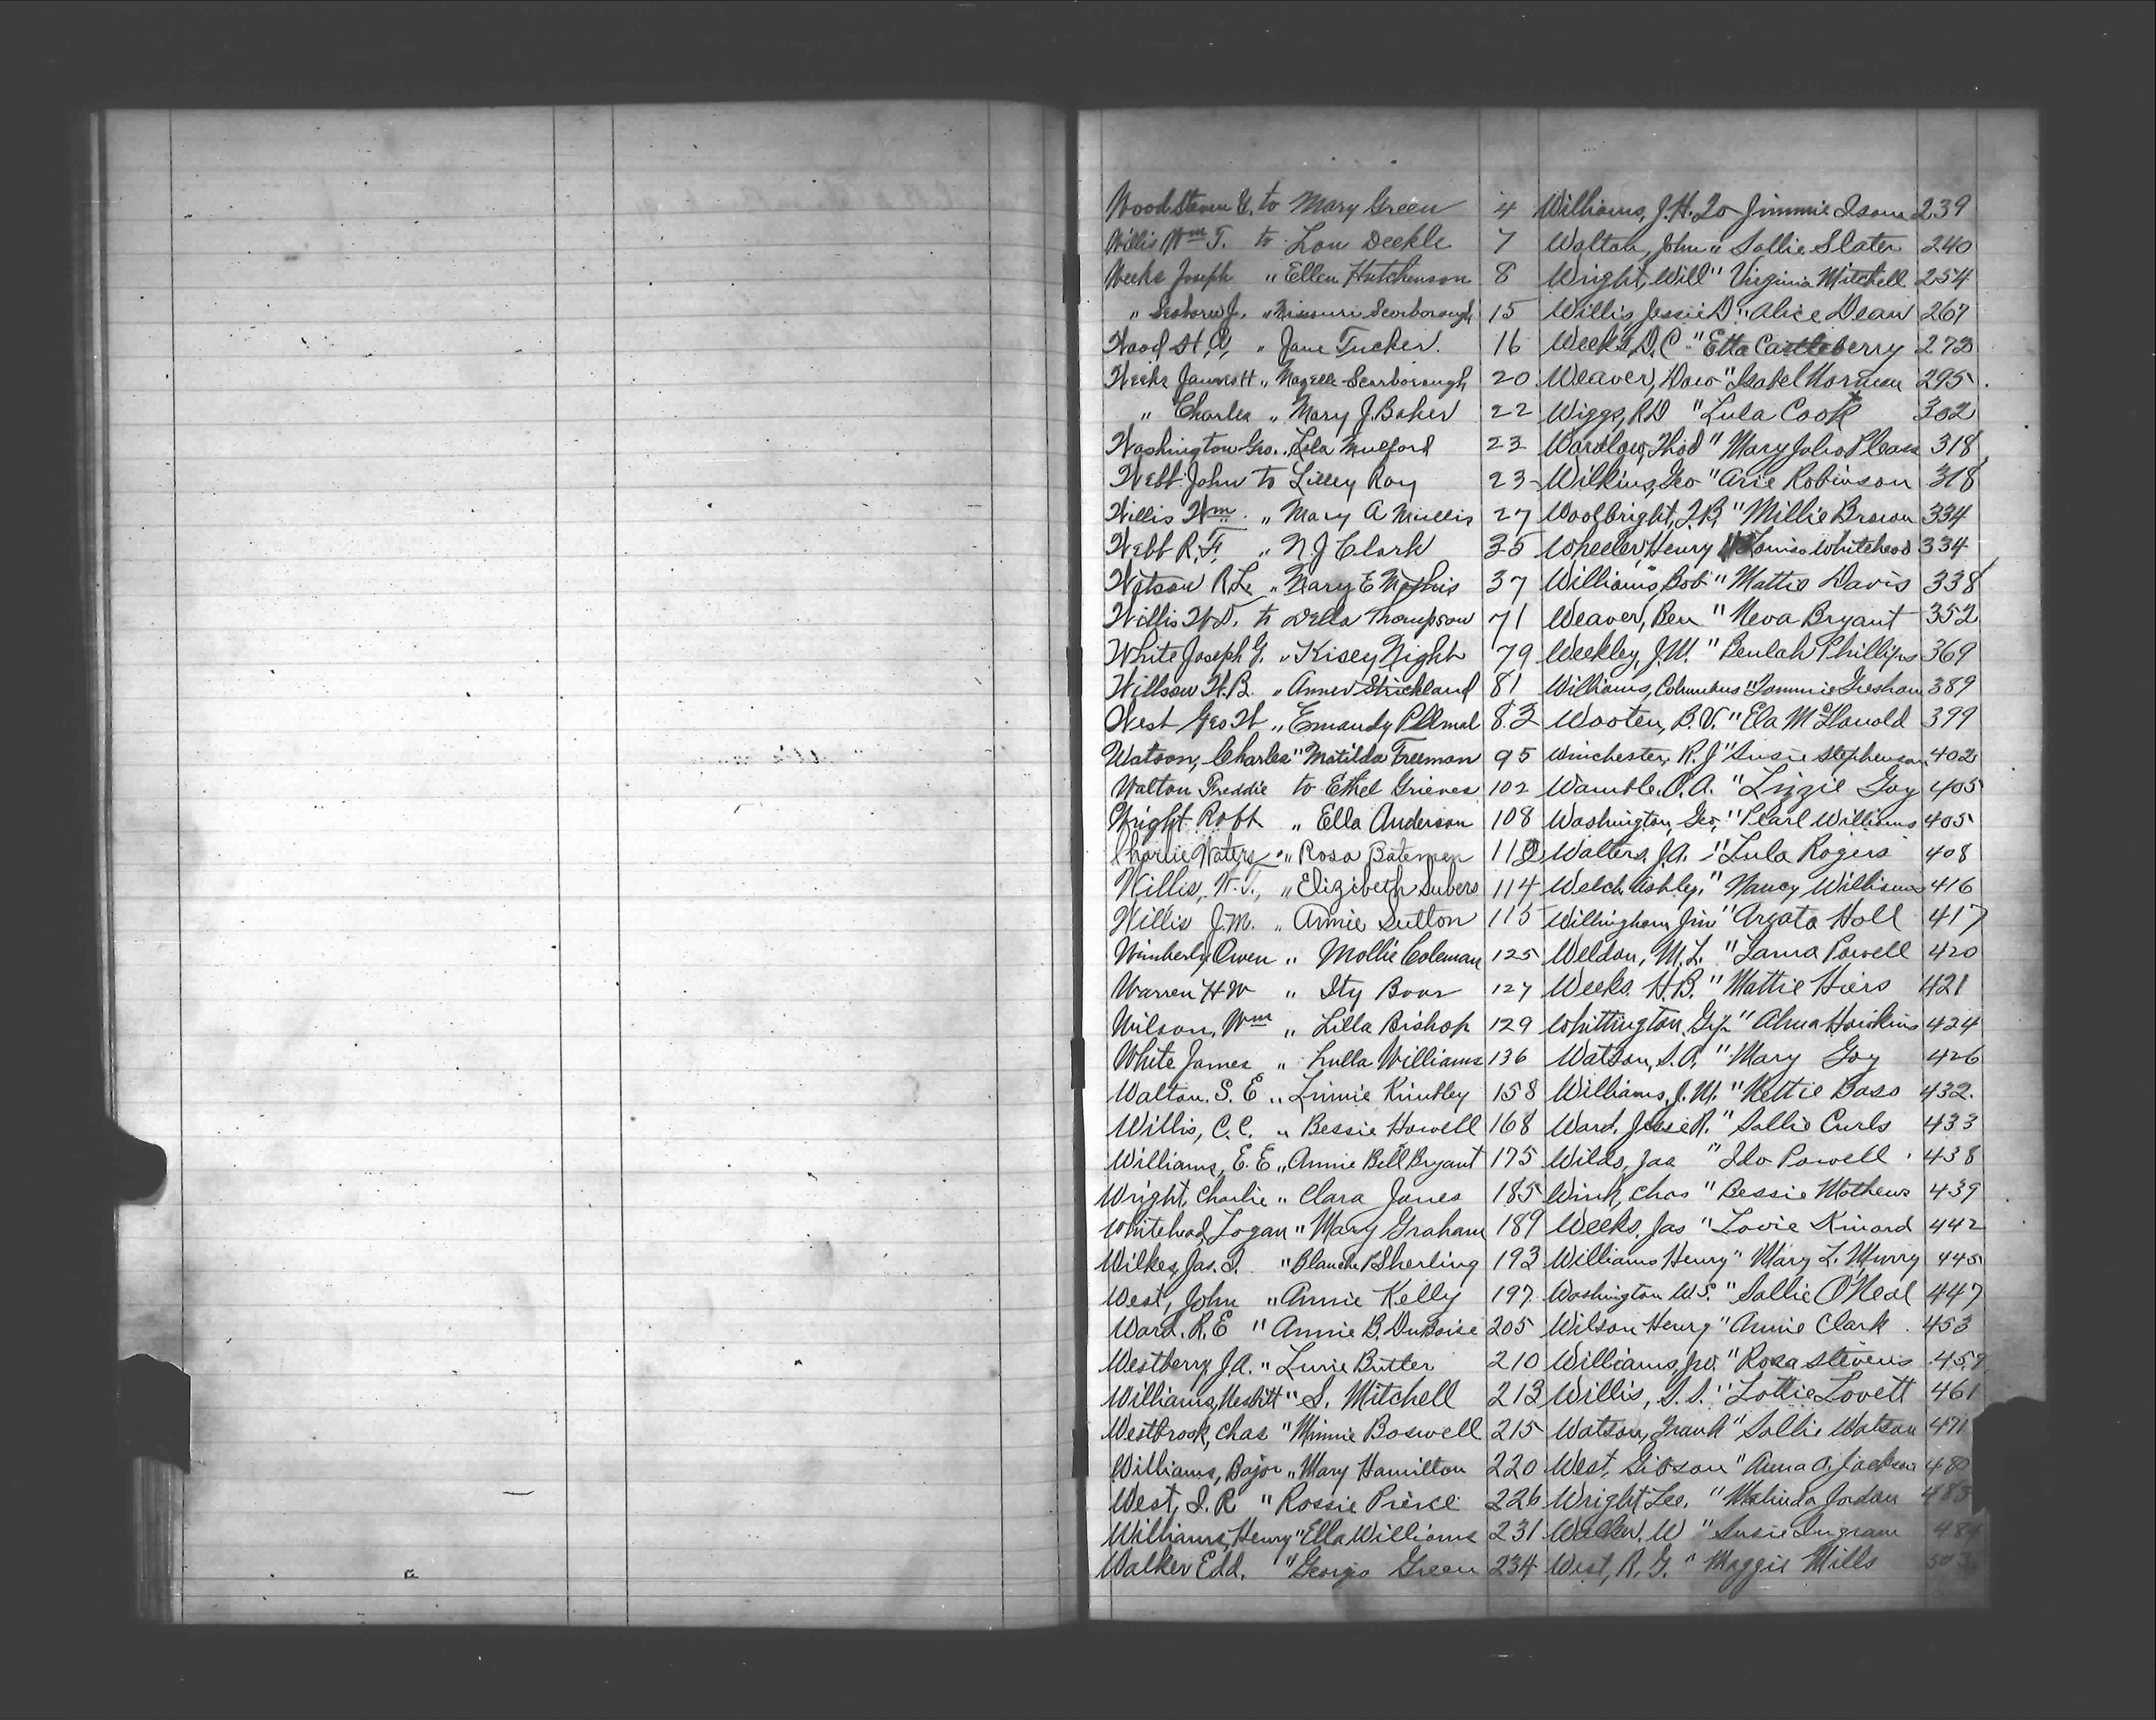 Wood Steven G. to Mary Green 4
Willis Wm T. to Lou Deekle 7
Weeks Joseph " Ellen Hutchenson 8
" Seaborn J. " Missouri Scorborough 15
Wood H. " Jane Tucker. 16
Weeks James H " Mozelle Scarborough 20
" Charles " Mary J. Baker 22
Washington Geo. " Lela Mulford 23
Webb John to Lilley Roy 23
Willis Wm. " Mary A Mullis 27
Webb R. F. " N J Clark 35
Watson R L. " Mary E Mathis 37
Willis W D. to Della Thompson 71
White Joseph G. " Kisey Night 79
Willson W. B. " Anner Strickland 81
West Geo W " Emandy 82
Watson, Charles " Matilda Freeman 95
Walton Freddie to Ethel Grieves 102
Wright Robt " Ella Anderson 108
Charlie Waters " Rosa Bateman 112
Willis, W. T., " Elizibeth Subers 114
Willis J. M. " Annie Sutton 115
Wimberly Owen " Mollie Coleman 125
Warren H W " Ity 127
Wilson, Wm " Lilla Bishop 129
White James " Lulla Williams 136
Walton. S. E " Linnie Kimbley 158
Willis, C. C. " Bessie Howell 168
Williams, E. E " Annie Bell Bryant 175
Wright, Charlie " Clara Jones 185
Whitehead, Logan " Mary Graham 189
Wilkes, Jas. I. " Blanche Sherling 193
West, John " Annie Kelly 197
Ward. R. E " Annie B. DuBoise 205
Westberry, J. A. " Lurie Butler 210
Williams, Nesbitt " S. Mitchell 213
Westbrook, Chas " Minnie Boswell 215
Williams, Bajor " Mary Hamilton 220
West, I. R " Rossie Pierce 226
Williams, Henry " Ella Williams 231
Walker Edd. " Georgia Green 234
Williams, J. H. To Jimmie Isom 239
Walton, John " Sallie Slater 240
Wright, Will " Virginia Mitchell 254
Willis, Jessie D " Alice Dean 267
Weeks, D. C. " Etta Castleberry 273
Weaver, Dow " Isabel Norman 295
Wiggs, R D " Lula Cook 302
Wardlow, Thod " Mary Julia Pleas 318
Wilkins, Geo " Arie Robinson 318
Woolbright, J. B. " Millie Brown 334
Wheeler, Henry " Louisa Whitehead 334
Williams, Bob " Mattie Davis 338
Weaver, Ben " Neva Bryant 352
Weekley, J. W. " Beulah Phillips 369
Williams, Columbus " Tommie Gresham 389
Wooten, B. V. " Ela McDanold 399
Winchester, R. J " Susie Stephenson 402
Wamble, O. A. " Lizzie Goy 405
Washington, Geo, " Pearl Williams 405
Walters, J. A. " Lula Rogers 408
Welch, Ashley, " Nancy Williams 416
Willingham, Jim " Argata Hall 417
Weldon, M. L. " Laura Powell 420
Weeks. H. B. " Mattie Hiers 421
Whittington, Gip " Alma Hawkins 424
Watson, S. A. " Mary Goy 426
Williams, J. M. " Nettie Bass 432.
Ward, Jessie R. " Sallie Curls 433
Wilds, Jas " Ida Powell 438
Wink, Chas " Bessie Mathews 439
Weeks, Jas " Lovie Kinard 442
Williams Henry " Mary L. Murry 445
Washington W. S. " Sallie O'Neal 447
Wilson Henry " Annie Clark 453
Williams, Jno. " Rosa Stevens 459
Willis, S. S. " Lottie Lovett 461
Watson, Frank " Sallie Watson 471
West, Gibson " Anna A. Jackson 480
Wright Lee. " Malinda Jordan 483
Walker, W " Susie Ingram 484
West, R. G. " Maggie Mills